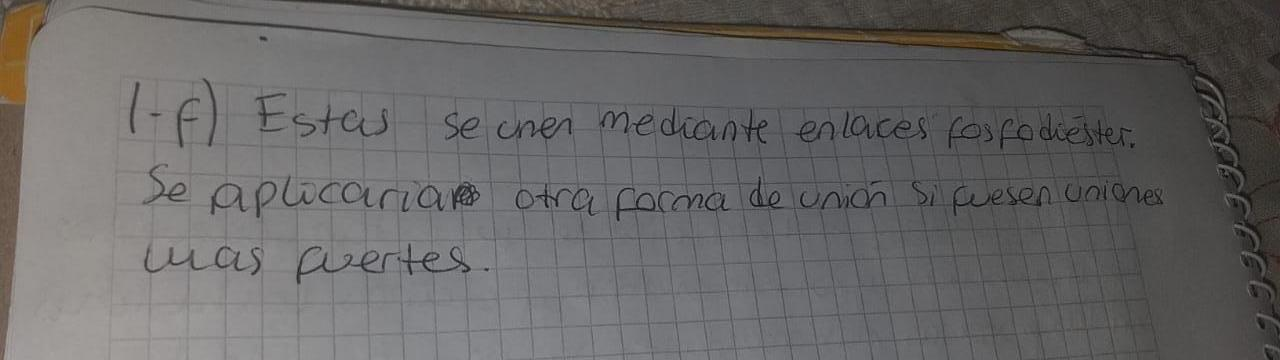 1-f) Estas se unen mediante enlaces fosfodiéster.
Se aplicaria otra forma de unión si fuesen uniones
mas fuertes.